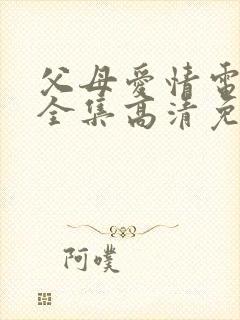 父母愛情電
全集高清免
阿噗